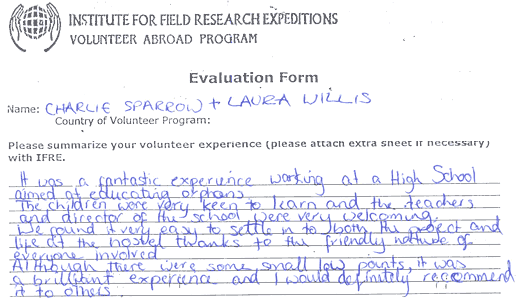 INSTITUTE FOR FIELD RESEARCH EXPEDITIONS
VOLUNTEER ABROAD PROGRAM
Evaluation Form
Name: CHARLIE SPARROW + LAURA WILLIS
Country of Volunteer Program:
Please summarize your volunteer experience (please attach extra sheet if necessary)
with IFRE.
It was a fantastic experience working at a High School
aimed at educating orphans
The children were very keen to learn and the teachers
and director of the school were very welcoming.
We found it very easy to settle in to both the project and
life at the hostel thanks to the friendly nature of
everyone involved.
Although there were some small low points, it was
a brilliant experience and I would definitely recommend
it to others.